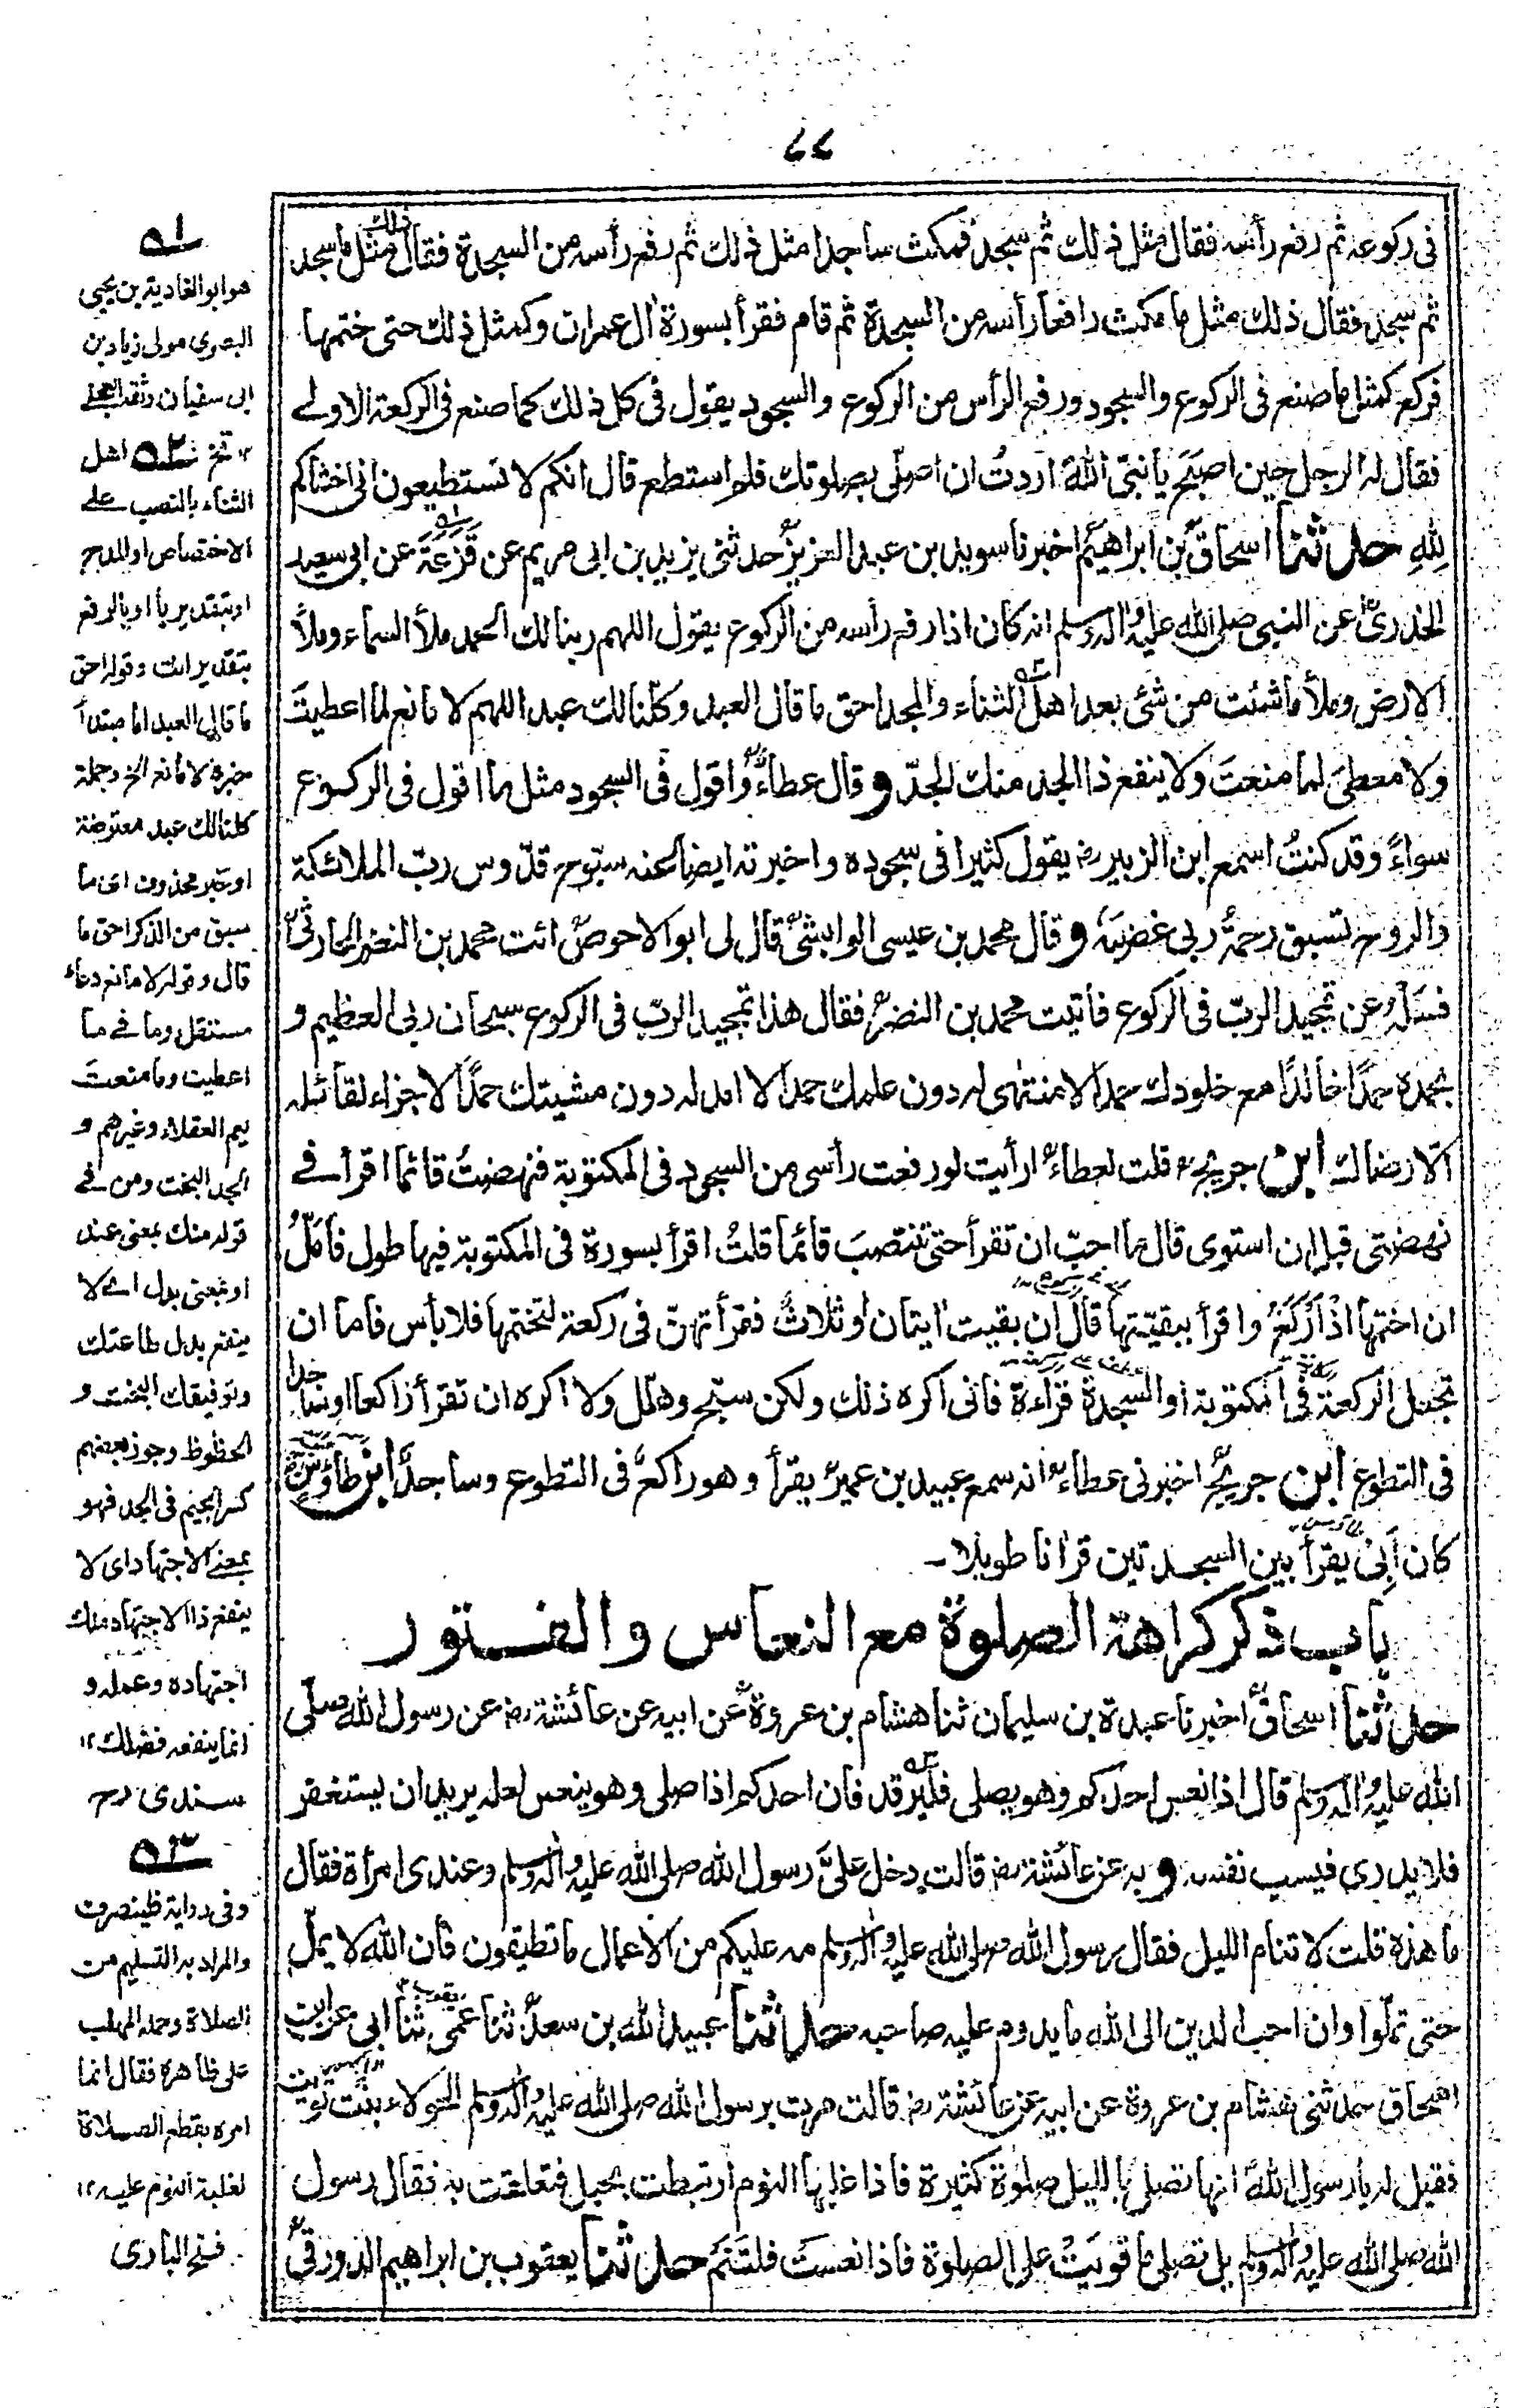 ٧٧
فى ركوعه ثم رفع رأسه فقال مثل ذلك ثم سجد فمكث ساجدا مثل ذلك ثم رفع رأسه من السجدة فقال مثل ذلك ما سجد
ثم سجد فقال ذلك مثل ما مكث رافعا رأسه من السجدة ثم قام فقرأ بسورة اٰل عمران وكمثل ذلك حتى ختمها
فركع كمثل ما صنع فى الركوع والسجود ورفع الرأس من الركوع والسجود يقول فى كل ذلك كما صنع فى الركعة الاولے
فقال له الرجل حين اصبح يا نبىّ الله اردتُ ان اصلّى بصلوتك فلم استطع قال انكم لا تستطيعون انى اخشاكم
للهِ حدثنا اسحاق بن ابراهيم اخبرنا سويد بن عبد العزيز حدثنى يزيد بن ابى مريم عن قَزَعَةَ عن ابى سعيد
الخدرى عن النبى صلى الله عليه واٰله وسلم انه كان اذا رفع رأسه من الركوع يقول اللهم ربنا لك الحمد ملأ السماء وملأ
الارض وملأ ما شئت من شئ بعد اهل الثناء والمجد احق ما قال العبد وكلنا لك عبد اللهم لا مانع لما اعطيتَ
ولا معطىَ لما منعتَ ولا ينفع ذا الجد منك الجدّ و قال عطاء واقول فى السجود مثل ما اقول فى الركوع
سواءً وقد كنتُ اسمع ابن الزبير رض يقول كثيرا فى سجوده واخبرته ايضا عنه سبّوح قدّوس ربّ الملائكة
والروح تسبق رحمةُ ربى غضبَه و قال محمد بن عيسى الوابشى قال لى ابو الاحوص ائت محمد بن النضر الحارثى
فسَلْه عن تمجيد الربّ فى الركوع فأتيت محمد بن النضر فقال هذا تمجيد الربّ فى الركوع سبحان ربى العظيم و
بحمده حمدًا خالدًا مع خلودك حمدا لا منتهى له دون علمك حمدا لا امد له دون مشيتك حمدًا لا جزاء لقائله
الّا رضاك ابن جريج قلت لعطاء ارأيت لو رفعت رأسى من السجود فى المكتوبة فنهضتُ قائما اقرأ فے
نهضتى قبل ان استوى قال ما احبّ ان تقرأ حتى تنتصبَ قائما قلتُ اقرأ بسورة فى المكتوبة فيها طول فأمَلّ
ان اختمها اذًا اركَعُ واقرأ ببقيّتها قال ان بقيت اٰيتان او ثلاثٌ فقرأتهنّ فى ركعة لتختمها فلا بأس فاما ان
تجعل الركعة فى المكتوبة او السجدة قراءة فانى اكره ذلك ولكن سبّح وهلّل ولا اكره ان تقرأ راكعا او ساجدا
فى التطوع ابن جريج اخبرنى عطاء انه سمع عبيد بن عمير يقرأ وهو راكعٌ فى التطوع وساجدًا ابن طاؤس
كان أَبِىْ يقرأ بين السجدتين قراٰنا طويلا۔
باب ذكر كراهة الصلوة مع النعاس والفتور
حدثنا اسحاق اخبرنا عبدة بن سليمان ثنا هشام بن عروة عن ابيه عن عائشة رض عن رسول الله صلّى
الله عليه واٰله وسلم قال اذا نعس احدكم وهو يصلى فليرقد فان احدكم اذا صلى وهو ينعس لعله يريد ان يستغفر
فلا يدرى فيسب نفسه و به عن عائشة رض قالت دخل علىَّ رسول الله صلى الله عليه واٰله وسلم وعندى امرأة فقال
ما هذه قلت لا تنام الليل فقال رسول الله صلى الله عليه واٰله وسلم مه عليكم من الاعمال ما تطيقون فان الله لا يملّ
حتى تملّوا وان احب الدين الى الله ما يدوم عليه صاحبه حدثنا عبيد الله بن سعد ثنا عمى ثنا ابى عن ابن
اسحاق حدثنى هشام بن عروة عن ابيه عن عائشة رض قالت مرت برسول الله صلى الله عليه واٰله وسلم الحولاء بنت تويت
فقيل له يا رسول الله انها تصلى بالليل صلوة كثيرة فاذا غلبها النوم ارتبطت بحبل فتعلقت به فقال رسول
الله صلى الله عليه واٰله وسلم بل تصلى ما قويَتْ على الصلوة فاذا نعست فلتَنَمْ حدثنا يعقوب بن ابراهيم الدورقى
ـــ۱ـه
هو ابو الغادية بن يحيى
البصرى مولى زياد بن
ابى سفيان وثقه العجلے
۱۲ تخ ـــ۲ـه اهل
الثناء بالنصب علے
الاختصاص او المدح
او بتقدير يا او بالرفع
بتقدير انت وقوله احق
ما قال العبد اما مبتدأ
خبره لا مانع الخ وجملة
كلنا لك عبد معترضة
او خبر محذوف اى ما
سبق من الذكر احق ما
قال وقوله لا مانع دعاء
مستقل وما فے ما
اعطيت وما منعت
يعم العقلاء وغيرهم و
الجد البخت ومن فے
قوله منك بمعنى عند
او بمعنى بدل اے لا
ينفع بدل طاعتك
وتوفيقك البخت و
الحظوظ وجوز بعضهم
كسر الجيم فى الجد فهو
بمعنے الاجتهاد اى لا
ينفع ذا الاجتهاد منك
اجتهاده وعمله و
انما ينفعه فضلك ۱۲
سندى رح
ـــ۳ـه
وفى رواية فلينصرف
والمراد به التسليم من
الصلاة وحمله المهلب
على ظاهره فقال انما
امره بقطع الصلاة
لغلبة النوم عليه ۱۲
فتح البارى